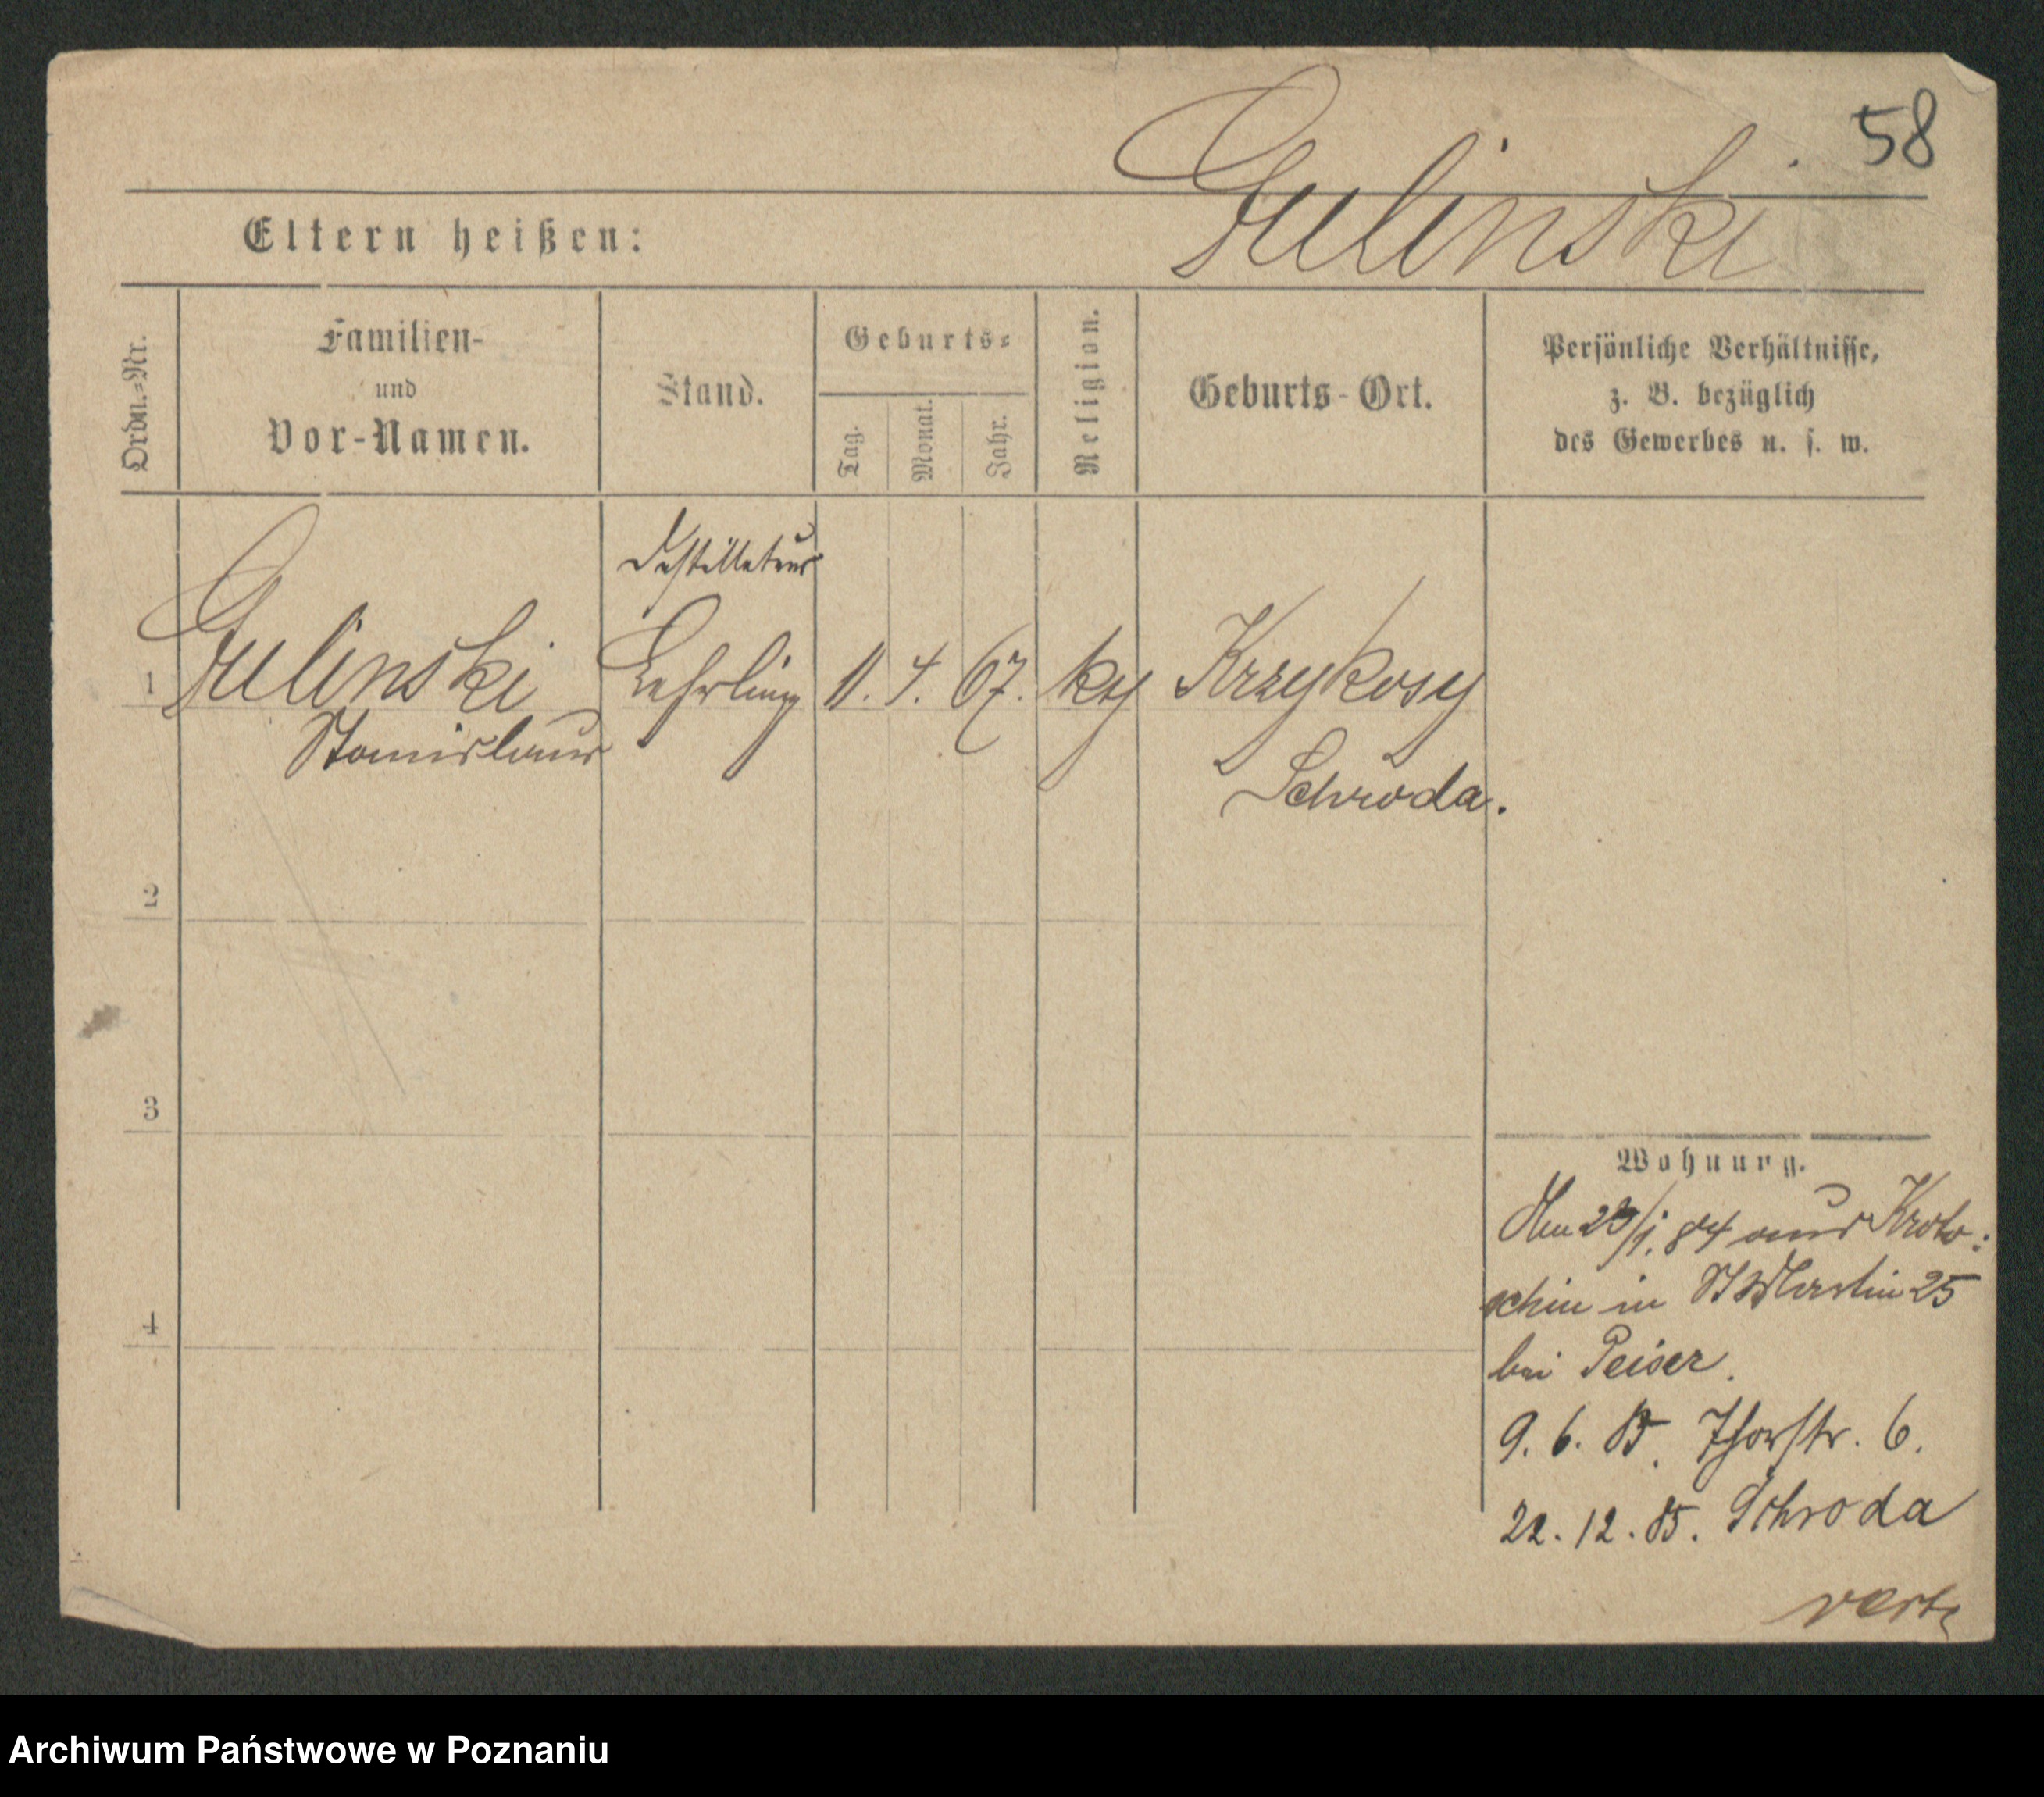 58
Gulinski
Eltern heißen:
Ordn.=Nr.
Familien-
und
Vor-Namen.
Stand.
Geburts=
Tag.
Monat.
Jahr.
Religion.
Geburts-Ort.
Persönliche Verhältnisse,
z. B. bezüglich
des Gewerbes u. s. w.
Destillateur
1 Gulinski Lehrling 11. 4. 67. kth Krzykosy
Stanislaus
Schroda.
2
3
4
Wohnung.
23/1. 84 aus Kroto:
schin in St Martin 25
bei Peiser.
9. 6. 85. Thorstr. 6.
22. 12. 85. Schroda
verte
Archiwum Państwowe w Poznaniu